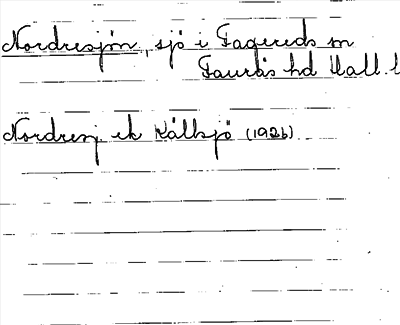 Nordresjön, sjö i Fagereds sn
Faurås hd Hall. l
Nordresj ek Källsjö (1926)